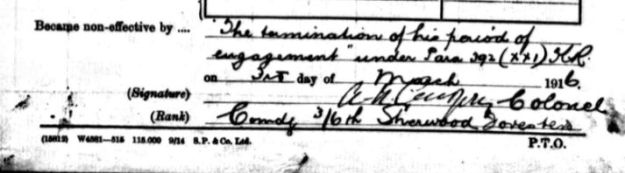 Became non-effective by .... "The termination of his period of
engagement" under Para 392 (XXI) K.R.
on 3rd day of March 1916.
(Signature) Colonel
(Rank) Comdg 3/6th Sherwood Foresters
(15812) W4561—515 115.000 9/14 S.P. & Co. Ltd.
P.T.O.